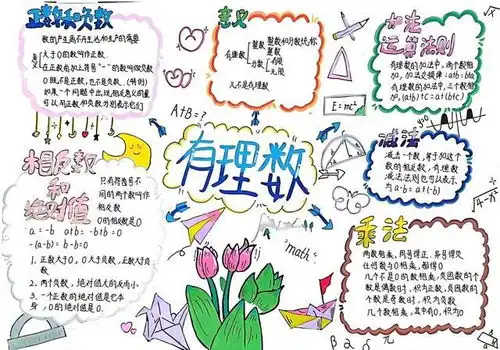 正数和负数
数的产生离不开生活和生产的需要
大于0的数叫作正数
在正数前加上符号"-"的数叫做负数
0既不是正数,也不是负数.(特例)
如果一个问题中出现相反意义的量
可以用正数和负数分别表示它们
意义
整数和分数统称
有理数
整数
分数
有限
无限
π不是有理数
加法
运算法则
有理数的加法中,两个数相
加,加法交换律:a+b=b+a
有理数的加法中,三个数相
加,(a+b)+c=a+(b+c)
A+B=?
E=mc²
有理数
相反数
和
绝对值
只有符号不
同的两个数叫作
相反数
0的相反数是0
a=-b a+b=-b+b=0
-(a-b)=b-b=0
1. 正数大于0,0大于负数,正数大于负
数
2. 两个负数,绝对值大的反而小
3. 一个正数的绝对值是它本
,0的绝对值是0.
减法
减法一个数,等于加这个
数的相反数,有理数
减法法则也可以表示
为a-b=a+(-b)
乘法
两数相乘,同号得正,异号得负
任何数与0相乘,都得0
几个不是0的数相乘,负因数的个
数是偶数时,积为正数,负因数的
个数是奇数时,积为负数
几个数相乘,其中有0,积为0
"math"